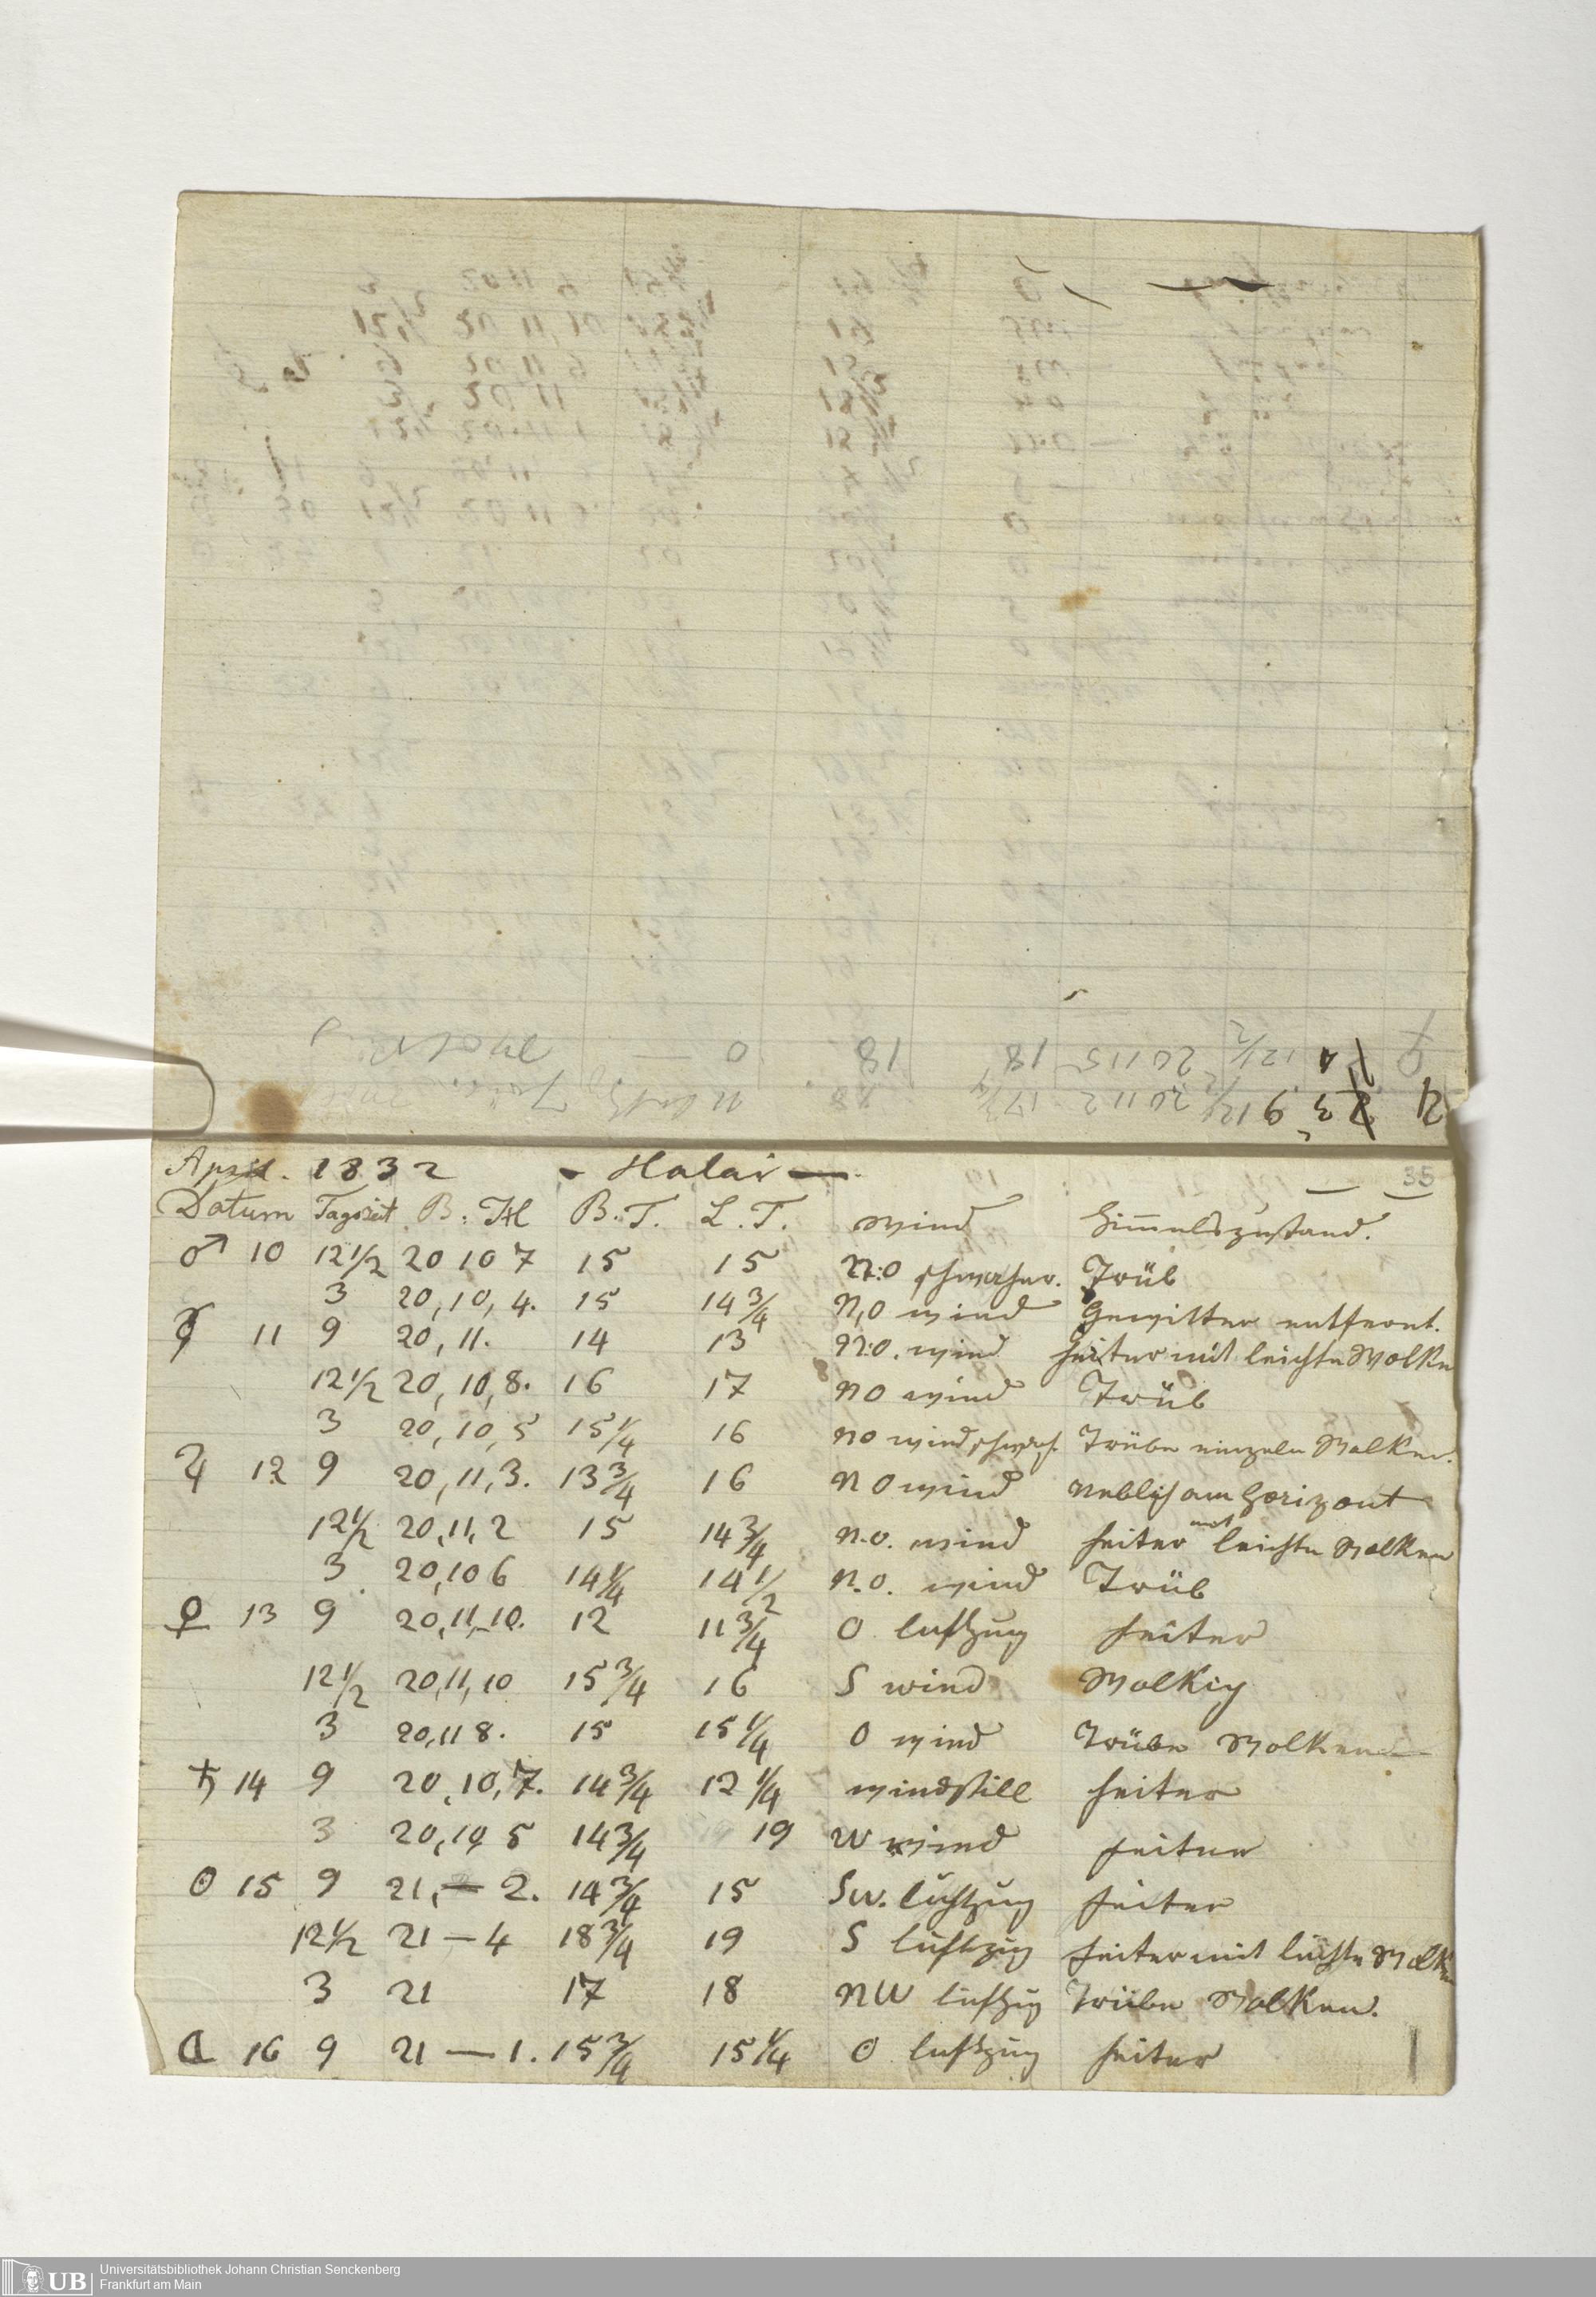 April. 1832 - Halai —
35
Datum Tagszeit B: H B.T. L.T. wind Himmelszustand.
♂ 10 12½ 20 10 7 15 15 N:O schwacher. Trüb
3 20, 10, 4. 15 14¾ N,O wind Gewitter entfernt.
☿ 11 9 20, 11. 14 13 N:O. wind heiter mit leichte Wolke
12½ 20, 10, 8. 16 17 NO wind Trüb
3 20, 10, 5 15¼ 16 NO wind schwach Trübe einzeln Wolken.
♃ 12 9 20, 11, 3. 13¾ 16 NO wind Neblich am Horizont
12½ 20, 11, 2 15 14¾ N.O. wind heiter mit leichte Wolken
3 20, 10 6 14¼ 14½ N.O. wind Trüb
♀ 13 9 20, 11, 10. 12 11¾ O luftzug heiter
12½ 20, 11, 10 15¾ 16 S wind Wolkig
3 20, 11 8. 15 15¼ O wind Trübe Wolken
♄ 14 9 20, 10, 7. 14¾ 12¼ windstill heiter
3 20, 10, 5 14¾ 19 W wind heiter
☉ 15 9 21, — 2. 14¾ 15 SW. luftzug heiter
12½ 21 — 4 18¾ 19 S luftzug heiter mit leichte Wolken
3 21 17 18 NW luftzug Trübe Wolken.
☾ 16 9 21 — 1. 15¾ 15¼ O luftzug heiter
♀ 4 12½ 20 11 5 18 18 O — Wolkig
♃ 3 9 12½ 20 11 2 17¾ 18
UB Universitätsbibliothek Johann Christian Senckenberg
Frankfurt am Main